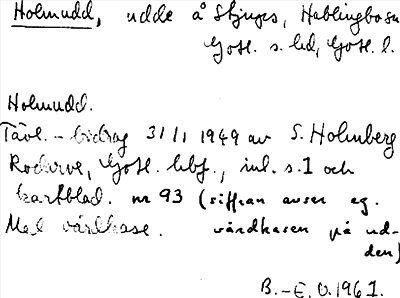 Holmudd, udde å Skinges, Hablingbo sn
Gotl. s. hd, Gotl. l.
Holmudd.
Tävl.-bidrag 31/1 1949 av S. Holmberg
Rodarve, Gotl. hbf., inl. s. 1 och
kartblad. nr 93 (siffran avser eg.
Med vårdkase. vårdkasen på ud-
den)
B.-E. O. 1961.